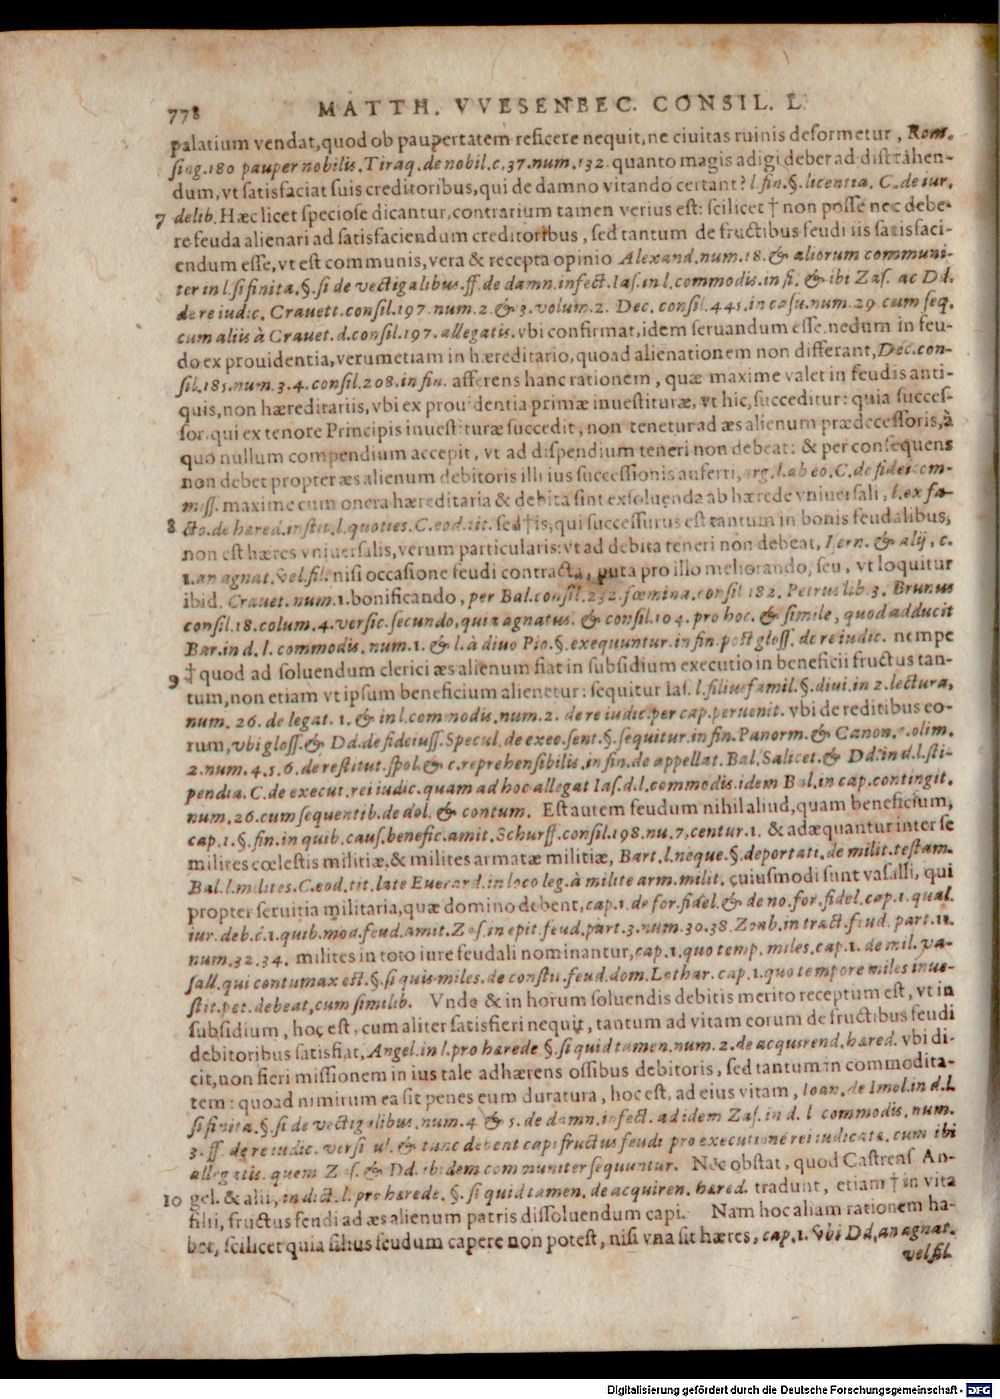 778 MATTH. VVESENBEC. CONSIL. L.
palatium vendat, quod ob paupertatem reficere nequit, ne ciuitas ruinis deformetur, Rom.
sing. 180 pauper nobilis. Tiraq. de nobil. c. 37. num. 132. quanto magis adigi debet ad distrahen-
dum, vt satisfaciat suis creditoribus, qui de damno vitando certant? l. fin. §. licentia. C. de iur.
7 delib. Hæc licet speciose dicantur, contrarium tamen verius est: scilicet † non posse nec debe-
re feuda alienari ad satisfaciendum creditoribus, sed tantum de fructibus feudi iis satisfaci-
endum esse, vt est communis, vera & recepta opinio Alexand. num. 18. & aliorum communi-
ter in l. si finita. §. si de vectigalibus. ff. de damn. infect. Ias. in l. commodis. in fi. & ibi Zas. ac Dd.
de re iudic. Crauett. consil. 197. num. 2. & 3. volum. 2. Dec. consil. 445. in casu. num. 29. cum seq.
cum aliis à Crauet. d. consil. 197. allegatis. vbi confirmat, idem seruandum esse nedum in feu-
do ex prouidentia, verumetiam in hæreditario, quoad alienationem non differant, Dec. con-
sil. 185. num. 3. 4. consil. 208. in fin. afferens hanc rationem, quæ maxime valet in feudis anti-
quis, non hæreditariis, vbi ex prouidentia primæ inuestituræ, vt hic, succeditur: quia succes-
sor, qui ex tenore Principis inuestituræ succedit, non tenetur ad æs alienum prædecessoris, à
quo nullum compendium accepit, vt ad dispendium teneri non debeat: & per consequens
non debet propter æs alienum debitoris illi ius successionis auferri, arg. l. ab eo. C. de fideicom-
miss. maxime cum onera hæreditaria & debita sint exsoluenda ab hærede vniuersali, l. ex fa-
8 cto. de hæred. instit. l. quoties. C. eod. tit. sed † is, qui successurus est tantum in bonis feudalibus,
non est hæres vniuersalis, verum particularis: vt ad debita teneri non debeat, Isern. & alij, c.
1. an agnat. vel fil. nisi occasione feudi contracta, puta pro illo meliorando, seu, vt loquitur
ibid. Crauet. num. 1. bonificando, per Bal. consil. 232. fœmina. consil 182. Petrus lib. 3. Brunus
consil. 18. colum. 4. versic. secundo, quia agnatus. & consil. 104. pro hoc. & simile, quod adducit
Bar. in d. l. commodis. num. 1. & l. à diuo Pio. §. exequuntur. in fin. post gloss. de re iudic. nempe
9 † quod ad soluendum clerici æs alienum fiat in subsidium executio in beneficii fructus tan-
tum, non etiam vt ipsum beneficium alienetur: sequitur Ias. l. filiusfamil. §. diui. in 2. lectura,
num. 26. de legat. 1. & in l. commodis. num. 2. de re iudic. per cap. peruenit. vbi de reditibus eo-
rum, vbi gloss. & Dd. de fideiuss. Specul. de exec. sent. §. sequitur. in fin. Panorm. & Canon. c. olim.
2. num. 4. 5. 6. de restitut. spol. & c. reprehensibilis. in fin. de appellat. Bal. Salicet. & Dd. in d. l. sti-
pendia. C. de execut. rei iudic. quam ad hoc allegat Ias. d. l. commodis. idem Bal. in cap. contingit.
num. 26. cum sequentib. de dol. & contum. Est autem feudum nihil aliud, quam beneficium,
cap. 1. §. fin. in quib. caus. benefic. amit. Schurff. consil. 198. nu. 7. centur. 1. & adæquantur inter se
milites cœlestis militiæ, & milites armatæ militiæ, Bart. l. neque. §. deportati. de milit. testam.
Bal. l. milites. C. eod. tit. late Euerard. in loco leg. à milite arm. milit. cuiusmodi sunt vasalli, qui
propter seruitia militaria, quæ domino debent, cap. 1. de for. fidel. & de no. for. fidel. cap. 1. qual.
iur. deb. c. 1. quib. mod. feud. amit. Zas. in epit. feud. part. 3. num. 30. 38. Zonb. in tract. feud. part. 11.
num. 32. 34. milites in toto iure feudali nominantur, cap. 1. quo temp. miles. cap. 1. de mil. va-
sall. qui contumax est. §. si quis miles. de constit. feud. dom. Lothar. cap. 1. quo tempore miles inue-
stit. pet. debeat, cum similib. Vnde & in horum soluendis debitis merito receptum est, vt in
subsidium, hoc est, cum aliter satisfieri nequit, tantum ad vitam eorum de fructibus feudi
debitoribus satisfiat, Angel. in l. pro hærede §. si quid tamen. num. 2. de acquirend. hæred. vbi di-
cit, non fieri missionem in ius tale adhærens ossibus debitoris, sed tantum in commodita-
tem: quoad nimirum ea sit penes eum duratura, hoc est, ad eius vitam, Ioan. de Imol. in d. l.
si finita. §. si de vectigalibus. num. 4. & 5. de damn. infect. ad idem Zas. in d. l. commodis. num.
3. ff. de re iudic. versi. ul. & tunc debent capi fructus feudi pro executione rei iudicatæ. cum ibi
allegatis. quem Zas. & Dd. ibidem communiter sequuntur. Nec obstat, quod Castrens. An-
10 gel. & alii, in dict. l. pro hærede. §. si quid tamen. de acquiren. hæred. tradunt, etiam † in vita
filii, fructus feudi ad æs alienum patris dissoluendum capi. Nam hoc aliam rationem ha-
bet, scilicet quia filius feudum capere non potest, nisi vna sit hæres, cap. 1. vbi Dd, an agnat.
vel fil.
Digitalisierung gefördert durch die Deutsche Forschungsgemeinschaft - DFG